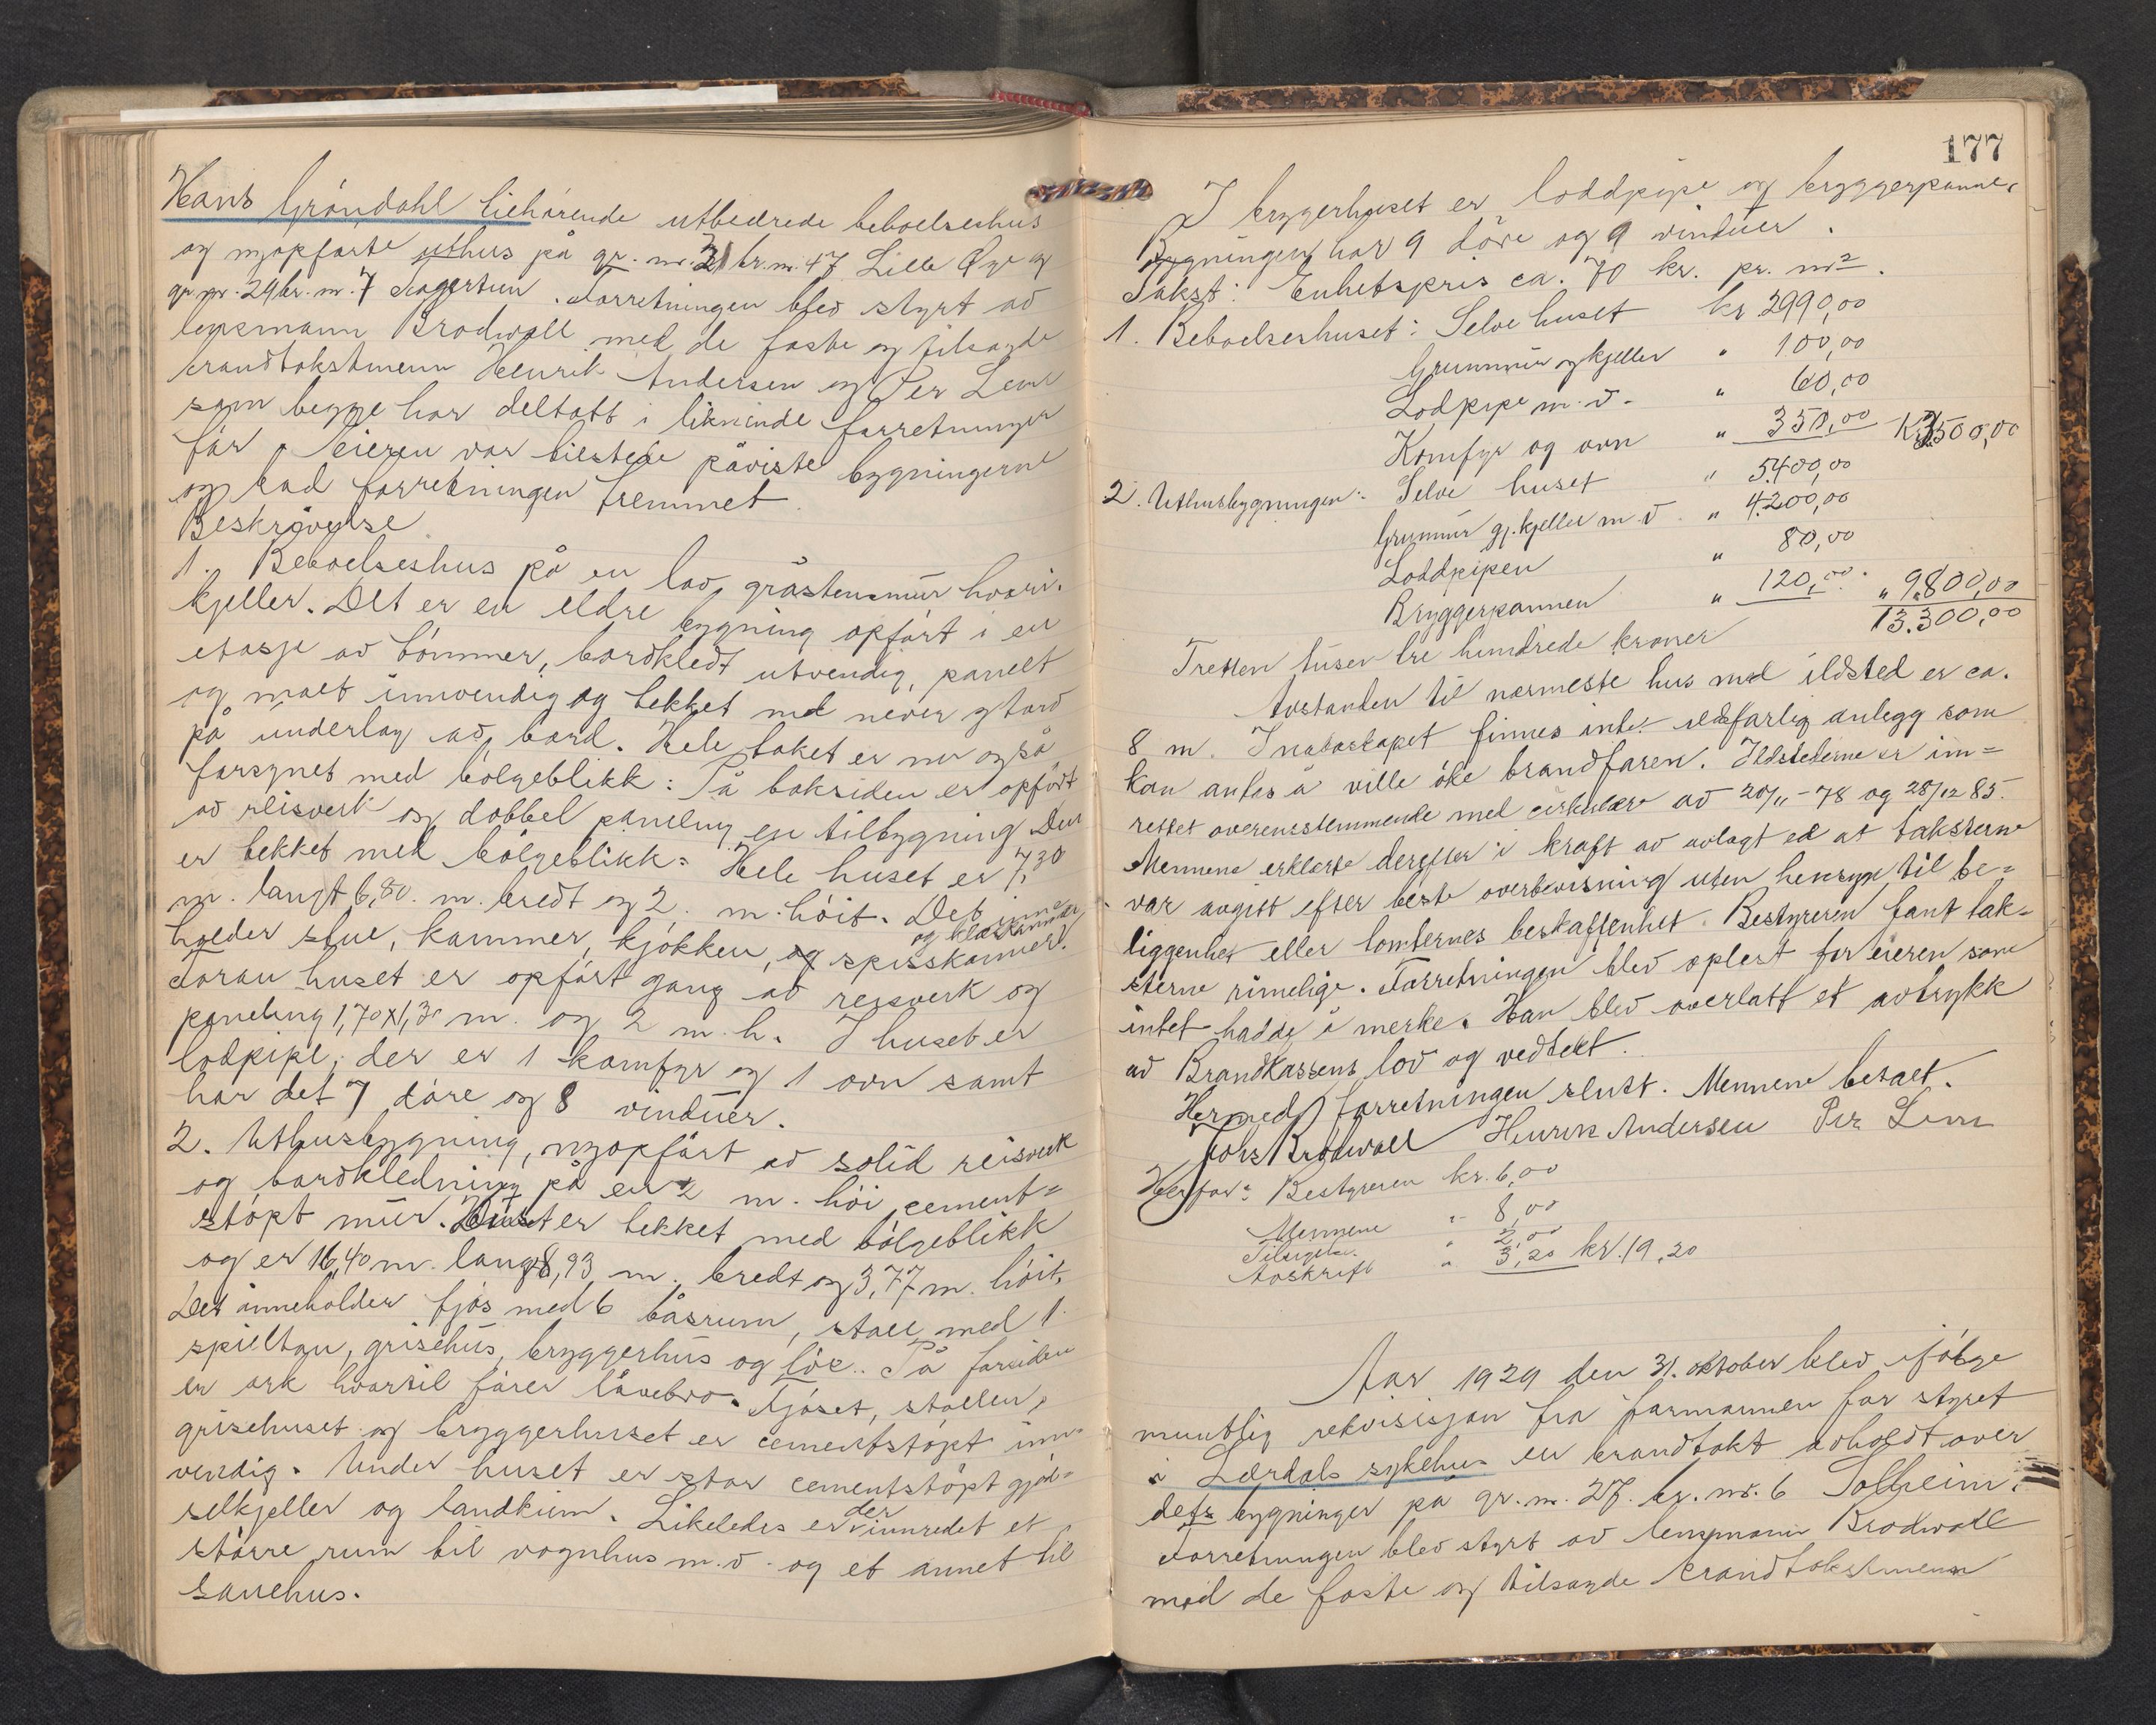 Hans Gröndahl tiehörende utbedrede beboelseshus
og nyopførte uthus på gr. nr. 31 br. nr. 47 Lille Øye og
gr. nr. 29 br. nr. 7 . Forretningen blev styrt av
lensmann Brodwall med de faste og tilsagde
brandtakstmenn Henrik Andersen og Per Lem
som begge har deltatt i liknende forretninger
för. Eieren var tilstede påviste bygningerne
og bad forretningen fremmet.
Beskrivelse
1. Beboelseshus på en lav gråstensmur hvori
kjeller. Det er en eldre bygning opfört i en
etasje av tömmer, bordkledt utvendig, panelt
og malt innvendig og tekket med never og tord
på underlag av bord. Hele taket er nu også
forsynet med bölgeblikk: På baksiden er opfört
av reisverk og dobbel paneling en tilbygning. Den
er tekket med bölgeblikk. Hele huset er 7,30
m. langt 6,80. m. bredt og 2. m. höit. Det inne-
holder stue, kammer, kjökken, og spisskammer. og klæskammer
Foran huset er opfört gang av reisverk og
paneling 1,70x1,30 m. og 2 m. h. I huset er
lodpipe; der er 1 komfyr og 1 ovn samt
har det 7 döre og 8 vinduer.
2. Uthusbygning, nyopfört av solid reisverk
og bordkledning på en 2 m. höi cement=
stöpt mur. Huset er tekket med bölgeblikk
og er 16,40 m. langt 8,93 m. bredt og 3,77 m. höit.
Det inneholder fjös med 6 båsrum, stall med 1
spilltau, grisehus, bryggerhus og löe. På forsiden
er ark hvortil förer låvebro. Fjöset, stallen,
grisehuset og bryggerhuset er cementstöpt inn-
vendig. Under huset er stor cementstöpt gjöd-
selkjeller og landkum. Likeledes er der innredet et
större rum til vognhus m.v. og et annet til
sauehus.
177
I bryggerhuset er loddpipe og bryggerpanne.
Bygningen har 9 döre og 9 vinduer.
Takst: Enhetspris ca. 70 kr. pr. m².
1. Beboelseshuset: Selve huset kr 2990,00
Grunnmur og kjeller " 100,00
Lodpipe m.v. " 60,00
Komfyr og ovn " 350,00 Kr. 3500,00
2. Uthusbygningen: Selve huset " 5400,00
Grunnmur gj. kjeller m.v. " 4200,00
Loddpipen " 80,00
Bryggerpannen " 120,00. " 9.800,00
13.300,00
Tretten tusen tre hundrede kroner
Avstanden til nærmeste hus med ildsted er ca.
8 m. I naboskapet finnes intet ildsfarlig anlegg som
kan antas å ville öke brandfaren. Ildstederne er inn=
rettet overensstemmende med cirkulære av 20/11-78 og 28/12 85.
Mennene erklærte derefter i kraft av avlagt ed at taksterne
var avgitt efter beste overbevisning uten hensyn til be=
liggenhet eller tomternes beskaffenhet. Bestyreren fant tak-
sterne rimelige. Forretningen blev oplest for eieren som
intet hadde å merke. Han blev overlatt et avtrykk
av Brandkassens lov og vedtekt.
Hermed forretningen slutt. Mennene betalt.
Johs Brodwall Henrik Andersen Per Lem
Herfor: Bestyreren kr. 6,00
Mennene " 8,00
Tilsigelse " 2,00
Avskrift " 3,20 kr. 19,20
Aar 1929 den 31. oktober blev ifölge
muntlig rekvisisjon fra formannen for styret
i Lærdals sykehus en brandtakt avholdt over
dets bygninger på gr. nr. 27. br. nr. 6 Solheim.
Forretningen blev styrt av lensmann Brodwall
med de faste og tilsagde brandtakstmenn